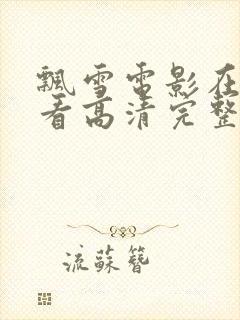 飘雪电影在
看高清完整
流蘇簪